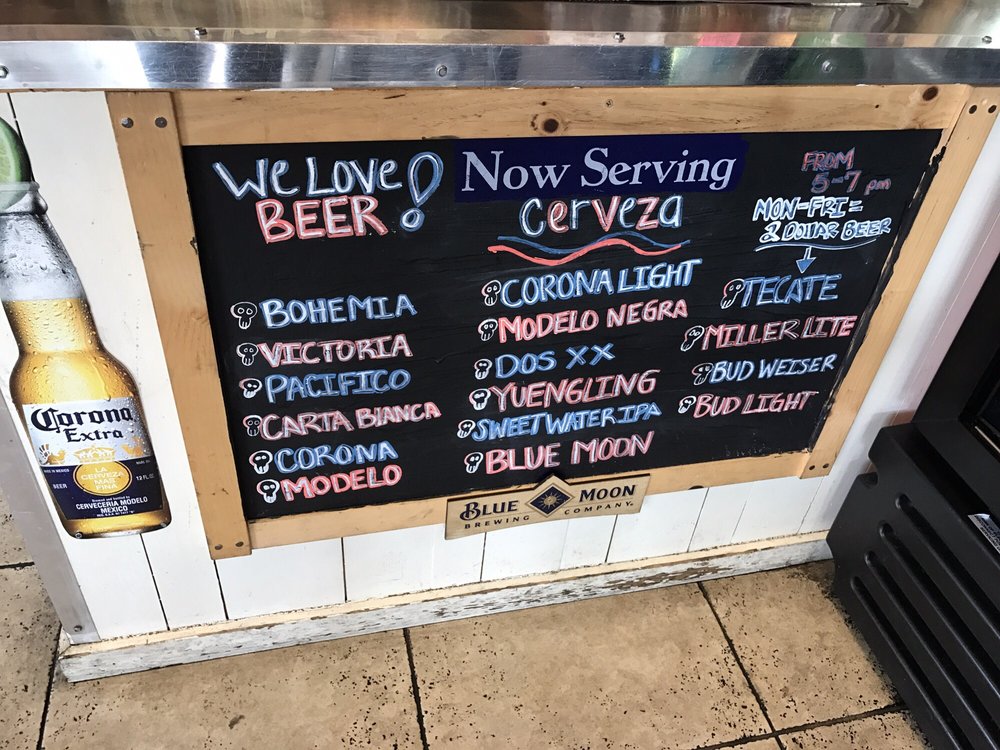 WE LOVE
BEER!
NOW SERVING
Cerveza
FROM
5-7 pm
MON-FRI =
2 DOLLAR BEER
BOHEMIA
VICTORIA
PACIFICO
CARTA BIANCA
CORONA
MODELO
CORONA LIGHT
MODELO NEGRA
DOS XX
YUENGLING
SWEETWATER IPA
BLUE MOON
TECATE
MILLER LITE
BUD WEISER
BUD LIGHT
BLUE MOON
BREWING COMPANY
Corona
Extra
LA
CERVEZA
MAS
FINA
BEER
12 FL OZ
CERVECERIA MODELO
MEXICO